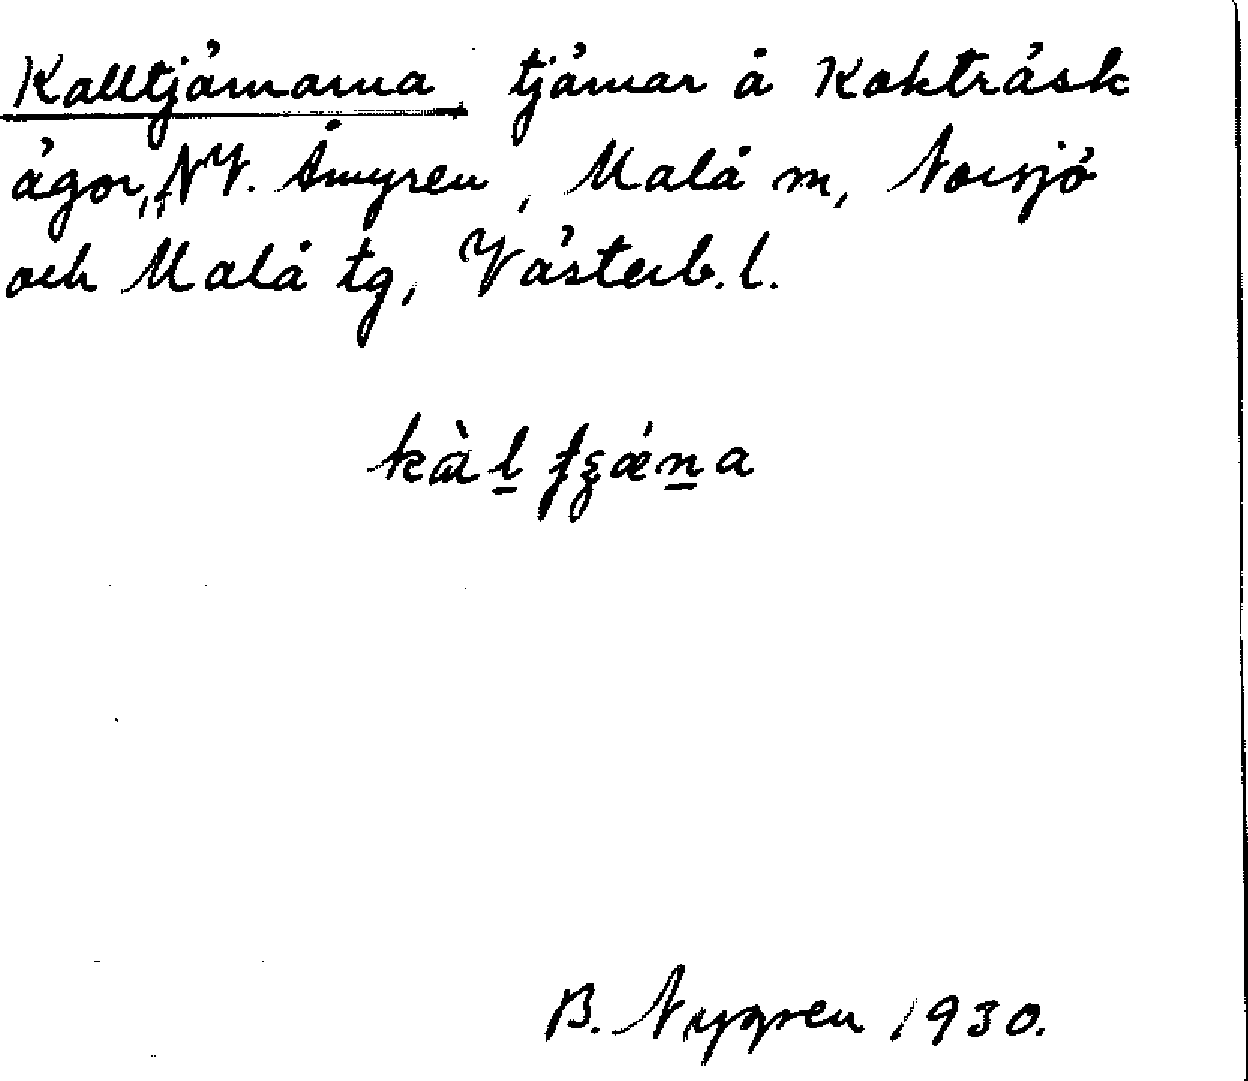 Kalltjärnarna, tjärnar å Kokträsk
ägor, NV. Åmyren, Malå sn, Norsjö
och Malå tg, Västerb. l.
B. Nygren 1930.